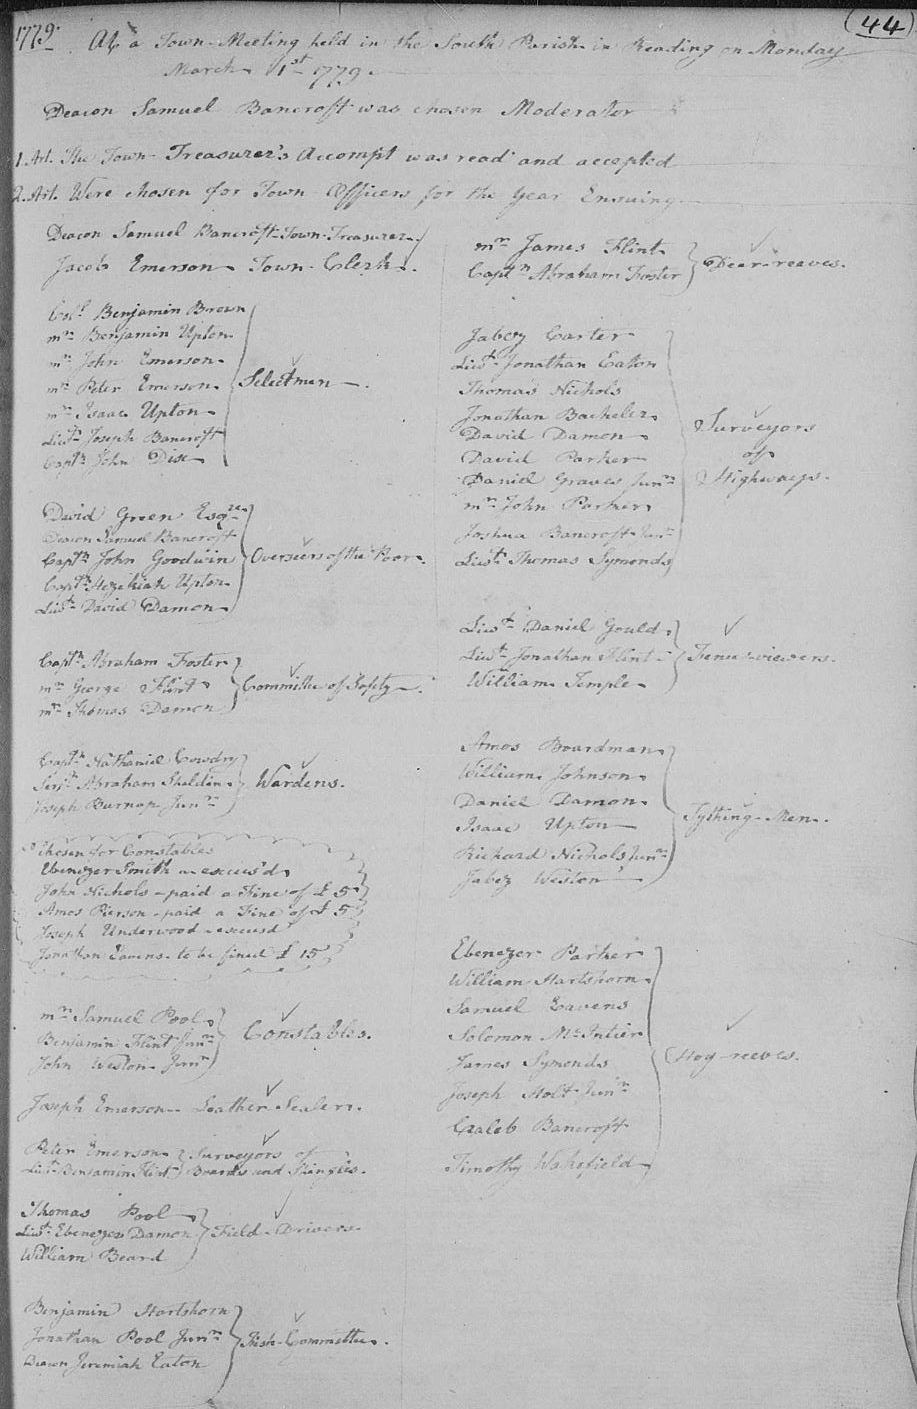 (44)
1779. At a Town-Meeting held in the South Parish in Reading on Monday
March 1st 1779.
Deacon Samuel Bancroft was chosen Moderator
1. Art. The Town Treasurer's Accompt was read and accepted
2. Art. Were chosen for Town Officers for the Year Ensuing.
Deacon Samuel Bancroft Town Treasurer.
Jacob Emerson Town Clerk.
Coll. Benjamin Brown
mr. Benjamin Upton
mr. John Emerson
mr. Peter Emerson
mr. Isaac Upton
Lieut. Joseph Bancroft
Captn. John Dix
Selectmen.
David Green Esqre.
Deacon Samuel Bancroft
Captn. John Goodwin
Captn. Hezekiah Upton
Lieut. David Damon
Overseers of the Poor.
Captn. Abraham Foster
mr. George Flint
mr. Thomas Damon
Committee of Safety.
Captn. Nathaniel Cowdry
Serjt. Abraham Sheldon
Joseph Burnap Junr.
Wardens.
Chosen for Constables
Ebenezer Smith excus'd
John Nichols - paid a Fine of £ 5
Amos Pierson - paid a Fine of £ 5
Joseph Underwood - excusd
Jonathan Eavens. to be fined £ 15
mr. Samuel Pool
Benjamin Flint Junr.
John Weston Junr.
Constables.
Joseph Emerson - Leather Sealer.
Peter Emerson
Lieut. Benjamin Flint
Surveyors of
Boards and Shingles.
Thomas Pool
Lieut. Ebenezer Damon
William Beard
Field-Drivers.
Benjamin Hartshorn
Jonathan Pool Junr.
Deacon Jeremiah Eaton
Fish-Committee.
mr. James Flint
Captn. Abraham Foster
Deer-reeves.
Jabez Carter
Lieut. Jonathan Eaton
Thomas Nichols
Jonathan Bacheler
David Damon
David Parker
Daniel Graves Junr.
mr. John Parker
Joshua Bancroft Junr.
Lieut. Thomas Symonds
Surveyors
of
Highways.
Lieut. Daniel Gould
Lieut. Jonathan Flint
William Temple
Fence-viewers.
Amos Boardman
William Johnson
Daniel Damon
Isaac Upton
Richard Nichols Junr.
Jabez Weston
Tything-Men.
Ebenezer Parker
William Hartshorn
Samuel Eavens
Solomon Mc.Intier
James Symonds
Joseph Holt Junr.
Caleb Bancroft
Timothy Wakefield
Hog-reeves.